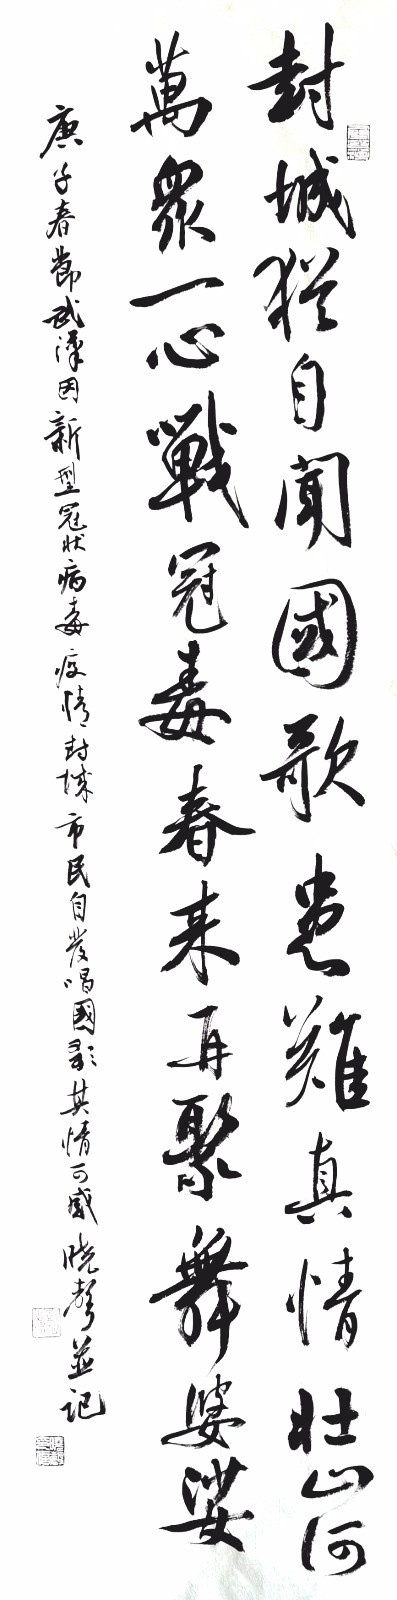 封城猶自聞國歌患難真情壯山河
萬衆一心戰冠毒春来再聚舞婆娑
庚子春節武漢因新型冠狀病毒疫情封城市民自發唱國歌其情可感曉聲並記